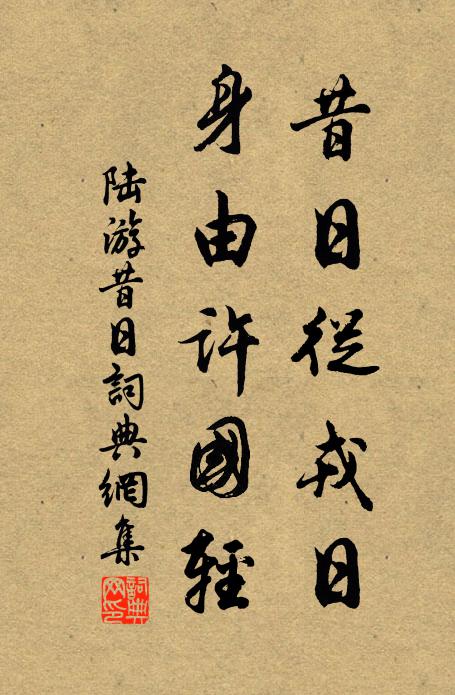 昔日從戎日
身由許國輕
陸游昔日詞典網集
詞典
网印